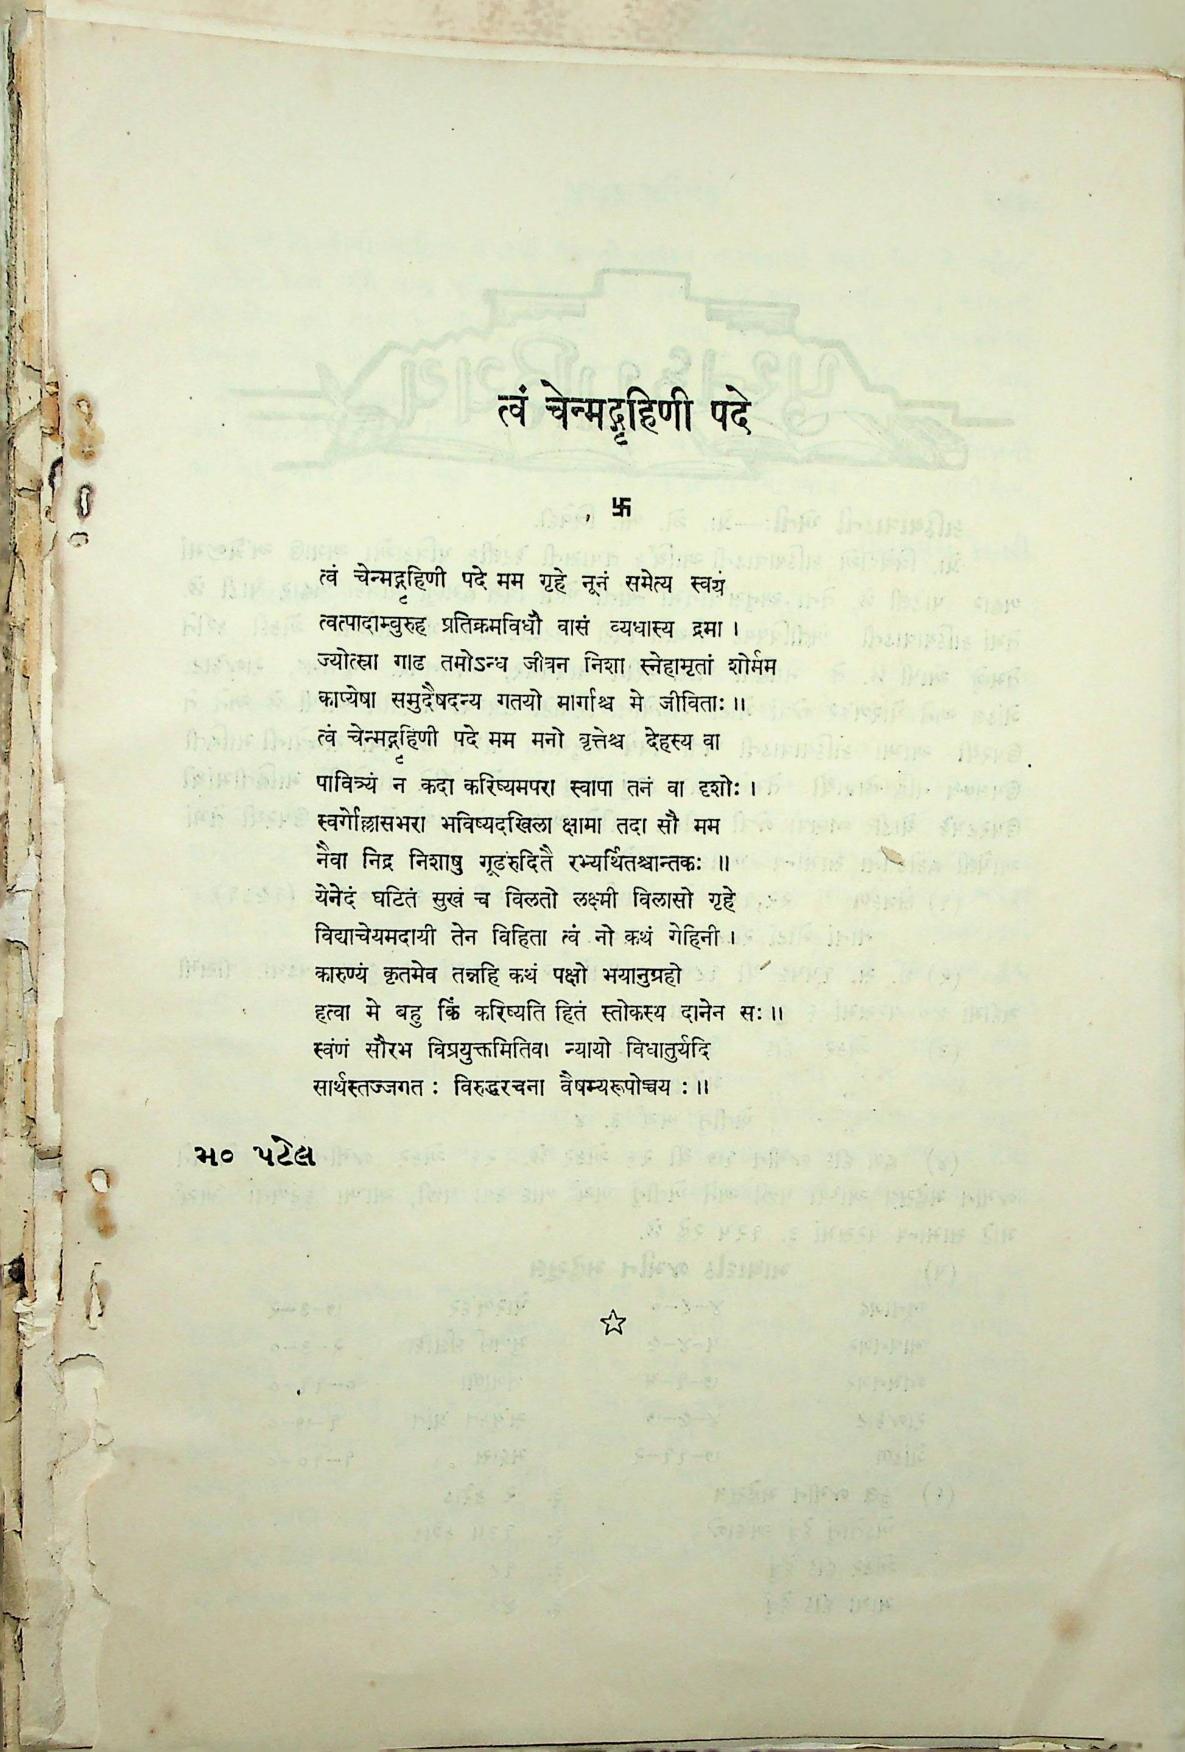 त्वं चेन्मद्गृहिणी पदे
卐
त्वं चेन्मद्गृहिणी पदे मम गृहे नूनं समेत्य स्वयं
त्वत्पादाम्बुरुह प्रतिक्रमविधौ वासं व्यधास्य द्रमा ।
ज्योत्स्ना गाढ तमोऽन्ध जीवन निशा स्नेहामृतां शोर्मम
काप्येषा समुदैषदन्य गतयो मार्गाश्च मे जीविताः ॥
त्वं चेन्मद्गृहिणी पदे मम मनो वृत्तेश्च देहस्य वा
पावित्र्यं न कदा करिष्यमपरा स्वापा तनं वा दृशोः ।
स्वर्गोल्लासभरा भविष्यदखिला क्षामा तदा सौ मम
नैवा निद्र निशासु गूढरुदितै रभ्यर्थितश्चान्तकः ॥
येनेदं घटितं सुखं च विलतो लक्ष्मी विलासो गृहे
विद्याचेयमदायी तेन विहिता त्वं नो कथं गेहिनी ।
कारुण्यं कृतमेव तन्नहि कथं पक्षो भयानुग्रहो
हत्वा मे बहु किं करिष्यति हितं स्तोकस्य दानेन सः ॥
स्वंणं सौरभ विप्रयुक्तमितिवा न्यायो विधातुर्यदि
सार्थस्तज्जगत : विरुद्धरचना वैषम्यरूपोच्चय : ॥
મ૦ પટેલ
☆